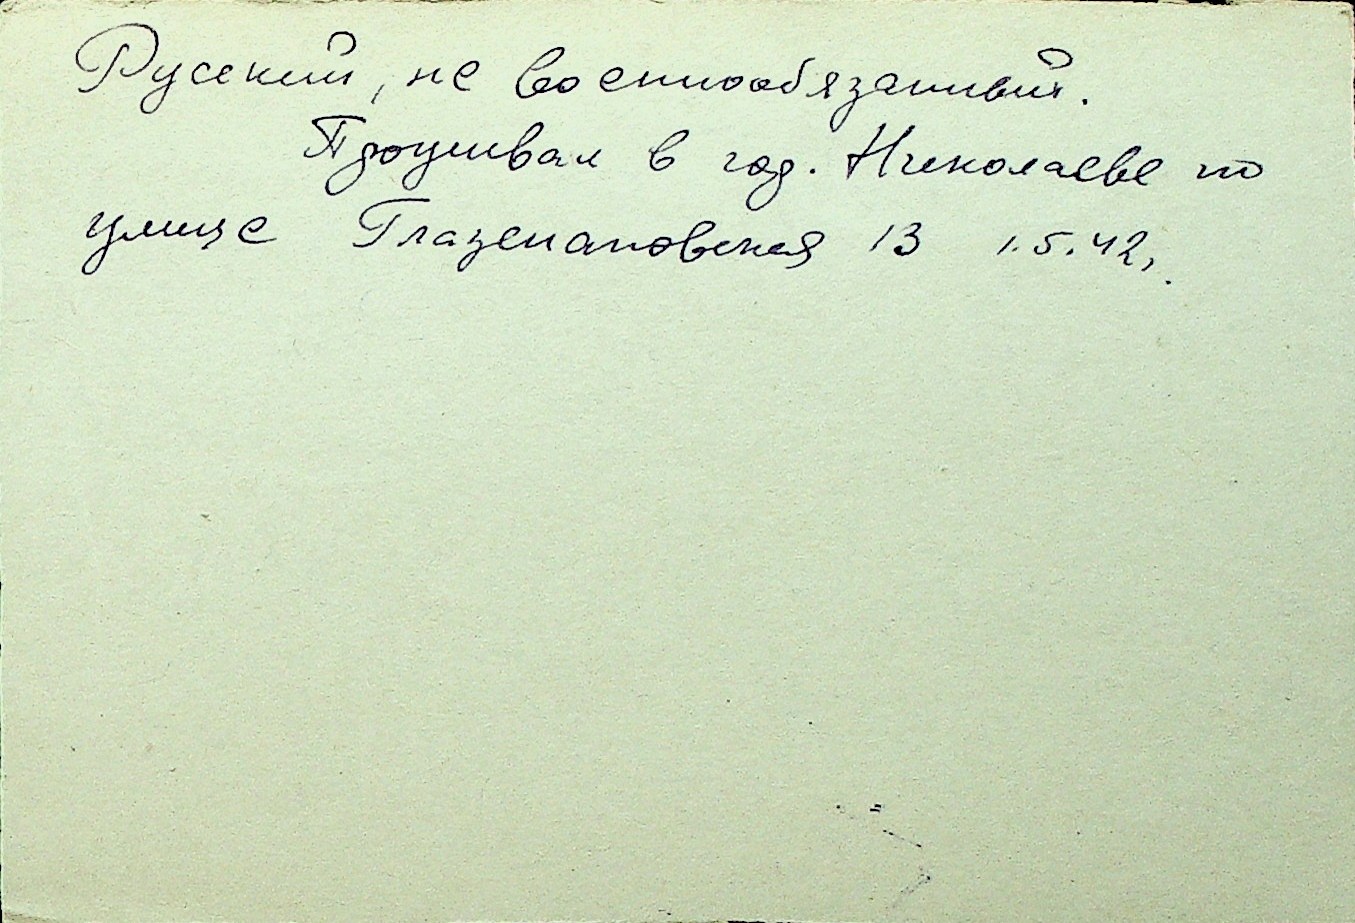 Русский, не военнообязанный.
Проживал в гор. Николаеве по
улице Глазенаповская 13 1.5.42.